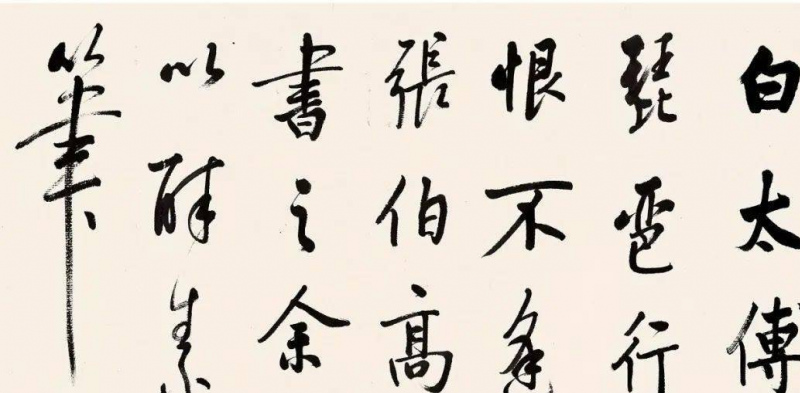 白太傅
琵琶行
恨不逢
張伯高
書之余
以酔素
筆